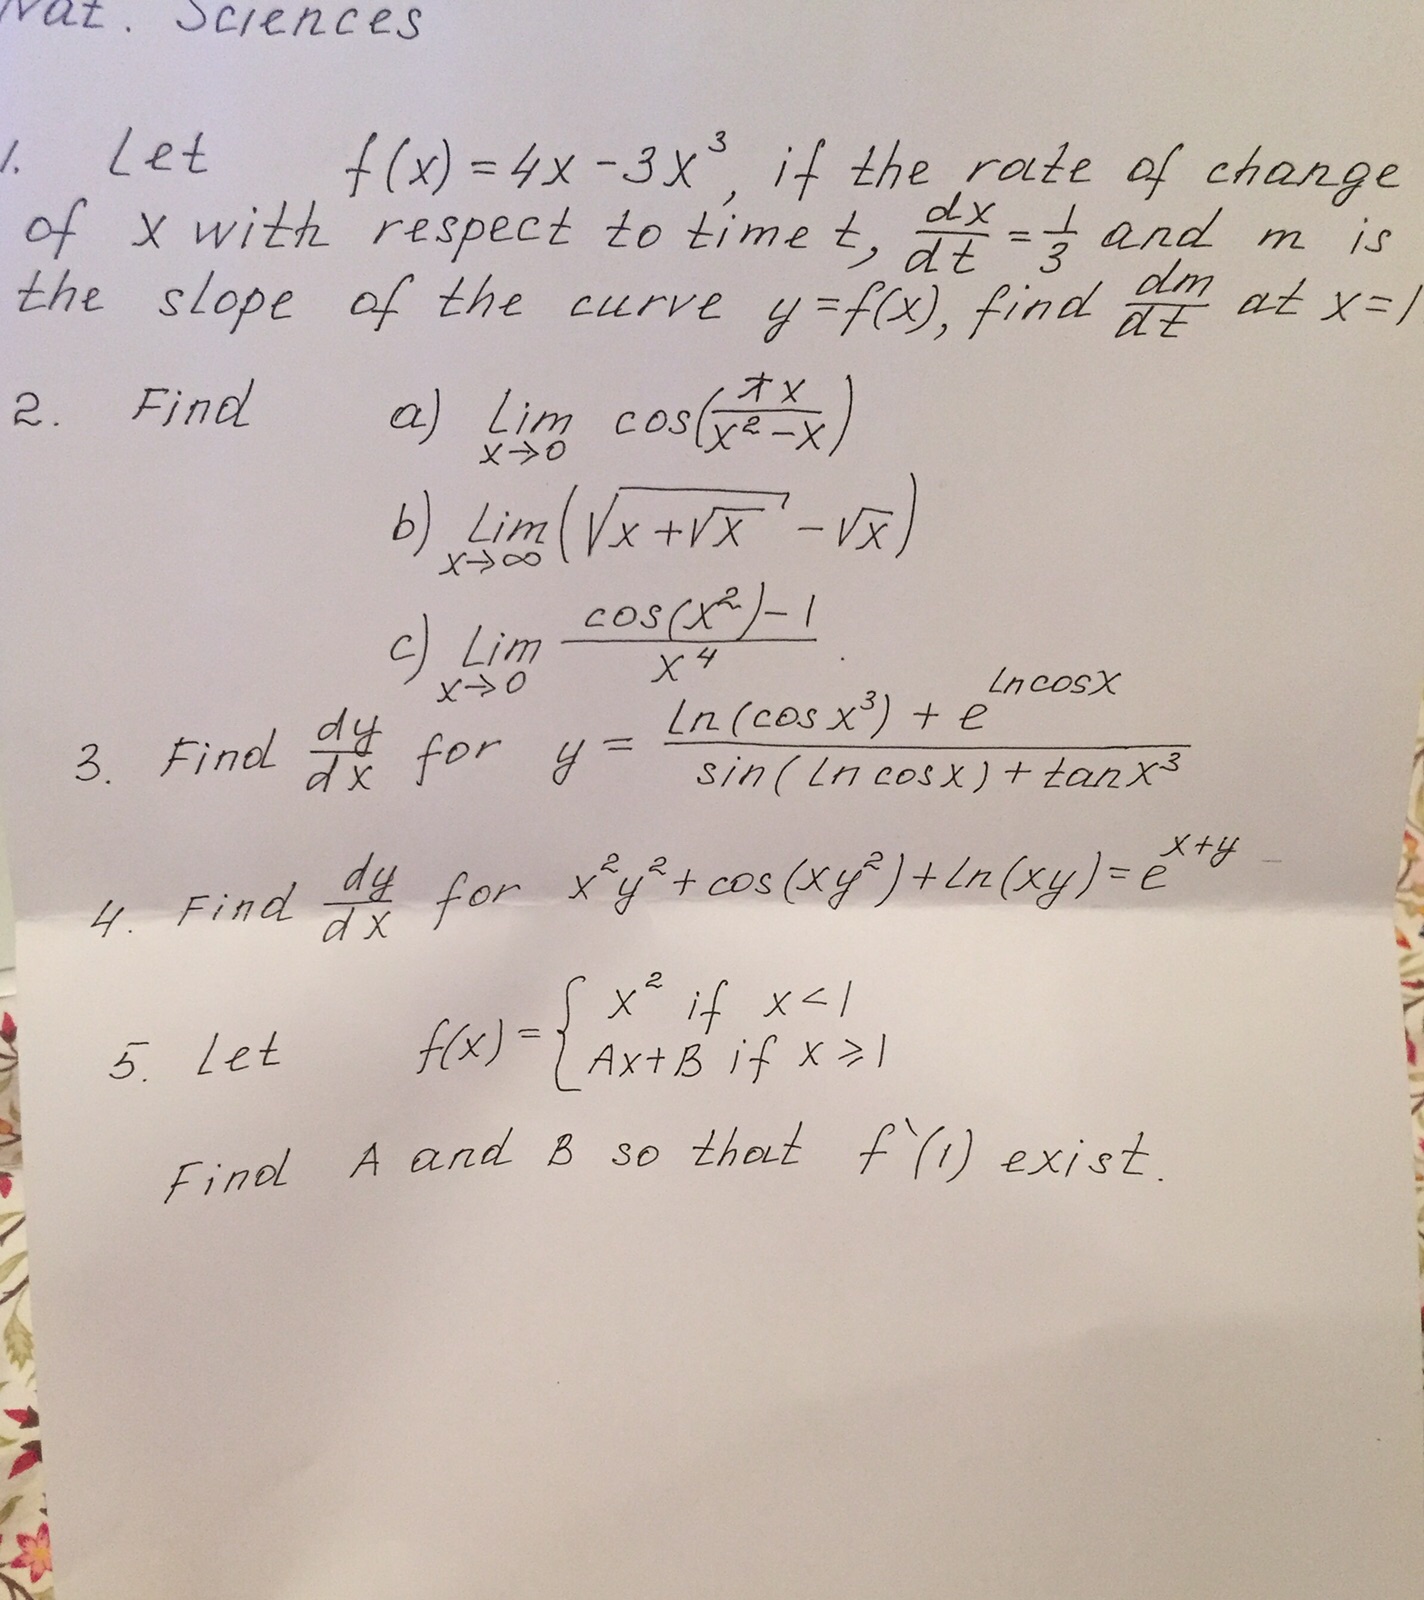 Nat. Sciences
1. Let f(x) = 4x - 3x³, if the rate of change
of x with respect to time t, dx/dt = 1/3 and m is
the slope of the curve y = f(x), find dm/dt at x = 1
2. Find a) Lim x→0 cos(πx/(x² - x))
b) Lim x→∞ (√(x + √x) - √x)
c) Lim x→0 (cos(x²) - 1)/x⁴.
3. Find dy/dx for y = (ln(cos x³) + e^(ln cos x))/(sin(ln cos x) + tan x³)
4. Find dy/dx for x²y² + cos(xy²) + ln(xy) = e^(x+y)
5. Let f(x) = { x² if x < 1
Ax + B if x ⩾ 1
Find A and B so that f`(1) exist.